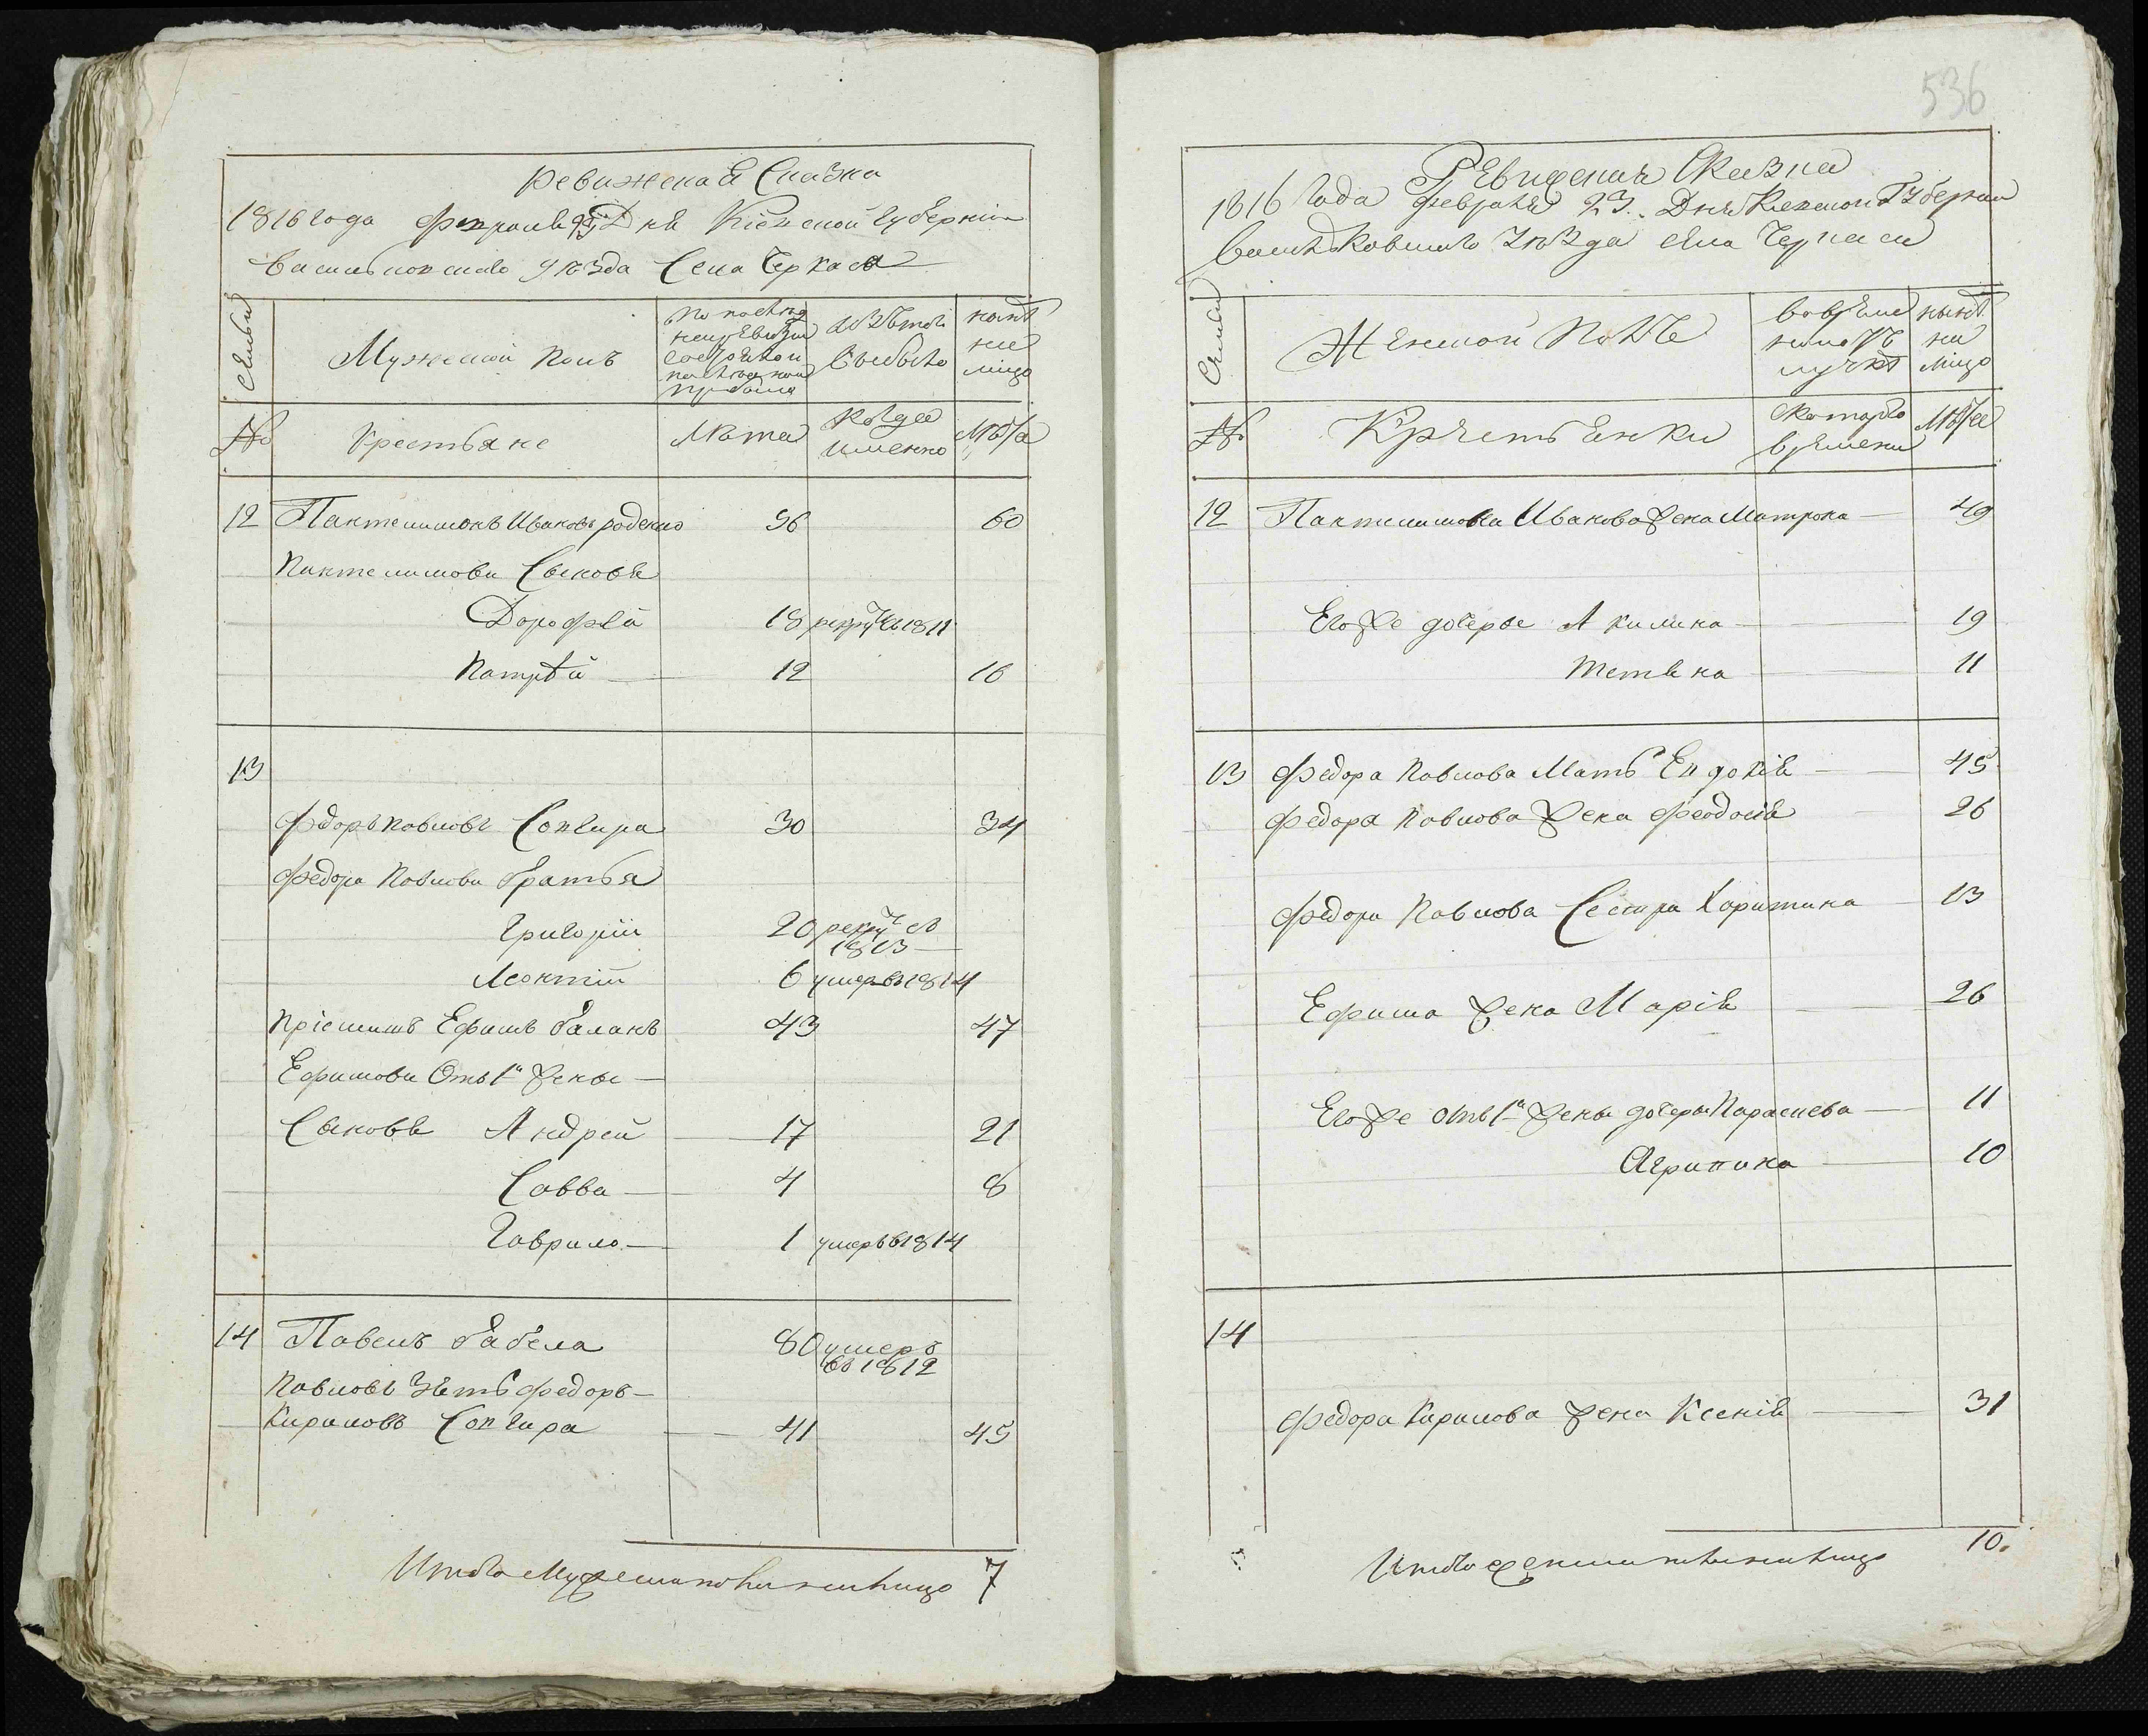 Ревижская Сказка
1816 года Февраля 23 Дня Кіевской губерніи
Васильковскаго уѣзда Села Черкаса
Семьи
Мужеской полъ
По послѣд
ней ревизіи
состояло и
послѣ оной
прибыло
Изъ того
выбыло
нынѣ
на
лицо
№
Крестьяне
Лѣта
Когда
именно
Лѣта
12 Пантелимонъ Ивановъ роденко 56 60
Пантелимова Сыновья
Дорофѣй 18 рекру въ 1811
Патрѣй 12 16
13
Федоръ Павловъ Сопчира 30 34
Федора Павлова братья
Григорій 20 рекру въ
1813
Леонтій 6 умеръ въ 1814
Пріемышъ Ефимъ баланъ 43 47
Ефимовы Отъ 1й жены
Сыновья Андрей 17 21
Савва 4 8
Гаврило 1 умеръ в 1814
14 Павелъ бабела 80 умеръ
въ 1812
Павловъ Зять Федоръ
Кириловъ Сопчира 41 45
Итого Мужеска пола на лицо 7
536
Ревижская Сказка
1816 Года февраля 23. Дня Киевской Губернии
Васильковскаго уѣзда села Черкаса
Семьи
Женской Полъ
во время
ной отлучкѣ
нынѣ
на
лицо
№
Крестьянки
с котораго
времени
Лѣта
12 Пантелимона Иванова жена Матрона 49
Его же дочеры Акилина 19
Тетяна 11
13 Федора Павлова Мать Евдокія 45
Федора Павлова жена Феодосія 26
Федора Павлова Сестра Харитина 13
Ефима жена Марія 26
Его же отъ 1й жены дочеры Параскева 11
Агрипина 10
14
Федора Кирилова жена Ксенія 31
Итого женска пола на лицо 10.